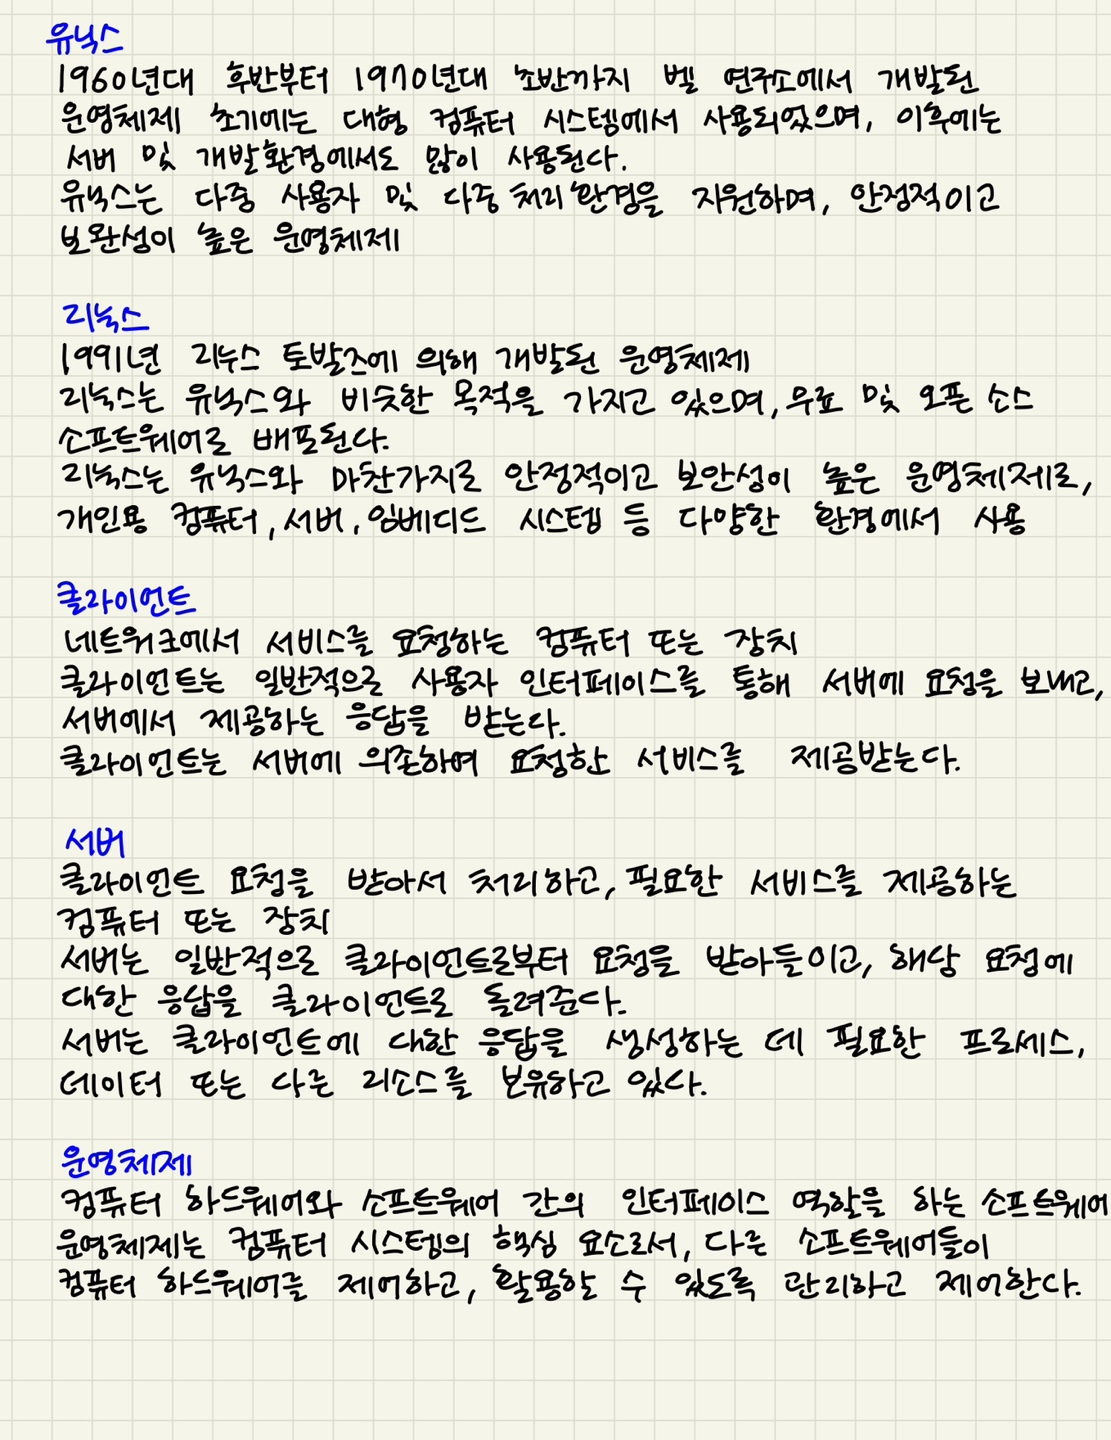 유닉스
1960년대 후반부터 1970년대 초반까지 벨 연구소에서 개발된
운영체제 초기에는 대형 컴퓨터 시스템에서 사용되었으며, 이후에는
서버 및 개발환경에서도 많이 사용된다.
유닉스는 다중 사용자 및 다중 처리 환경을 지원하며, 안정적이고
보완성이 높은 운영체제
리눅스
1991년 리누스 토발즈에 의해 개발된 운영체제
리눅스는 유닉스와 비슷한 목적을 가지고 있으며, 무료 및 오픈 소스
소프트웨어로 배포된다.
리눅스는 유닉스와 마찬가지로 안정적이고 보안성이 높은 운영체제로,
개인용 컴퓨터, 서버, 임베디드 시스템 등 다양한 환경에서 사용
클라이언트
네트워크에서 서비스를 요청하는 컴퓨터 또는 장치
클라이언트는 일반적으로 사용자 인터페이스를 통해 서버에 요청을 보내고,
서버에서 제공하는 응답을 받는다.
클라이언트는 서버에 의존하여 요청한 서비스를 제공받는다.
서버
클라이언트 요청을 받아서 처리하고, 필요한 서비스를 제공하는
컴퓨터 또는 장치
서버는 일반적으로 클라이언트로부터 요청을 받아들이고, 해당 요청에
대한 응답을 클라이언트로 돌려준다.
서버는 클라이언트에 대한 응답을 생성하는 데 필요한 프로세스,
데이터 또는 다른 리소스를 보유하고 있다.
운영체제
컴퓨터 하드웨어와 소프트웨어 간의 인터페이스 역할을 하는 소프트웨어
운영체제는 컴퓨터 시스템의 핵심 요소로서, 다른 소프트웨어들이
컴퓨터 하드웨어를 제어하고, 활용할 수 있도록 관리하고 제어한다.